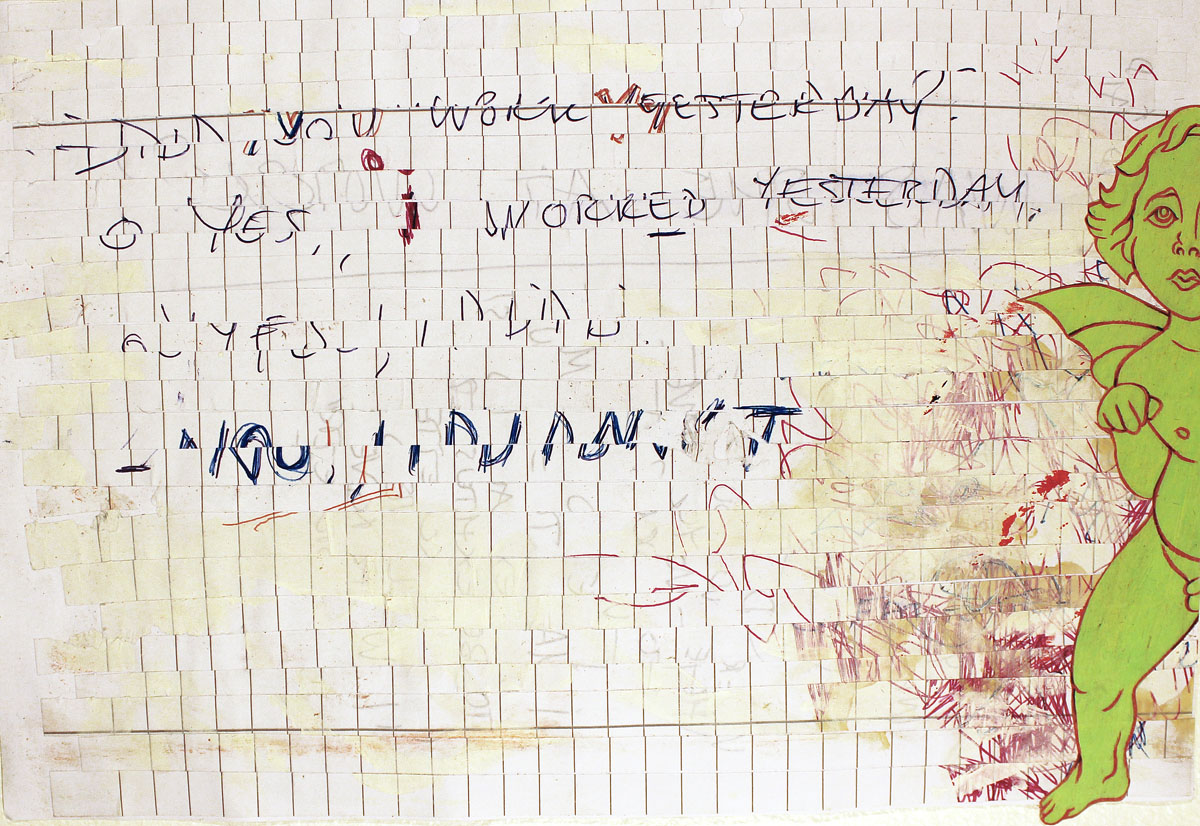 DID YOU WORK YESTERDAY?
YES, I WORKED YESTERDAY.
YES, I DID.
- NO, I DIDN'T